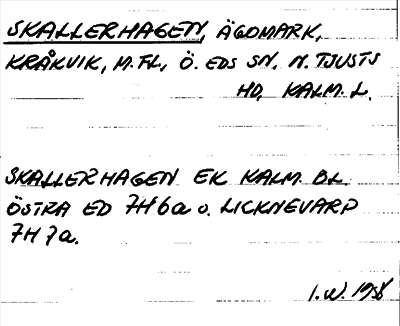 SKALLERHAGEN, ÄGOMARK,
KRÅKVIK, M.FL, Ö. EDS SN. N. TJUSTS
HD, KALM. L.
SKALLERHAGEN EK KALM. BL.
ÖSTRA ED 7H 6a o. LICKNEVARP
7H 7a.
I.W. 1958